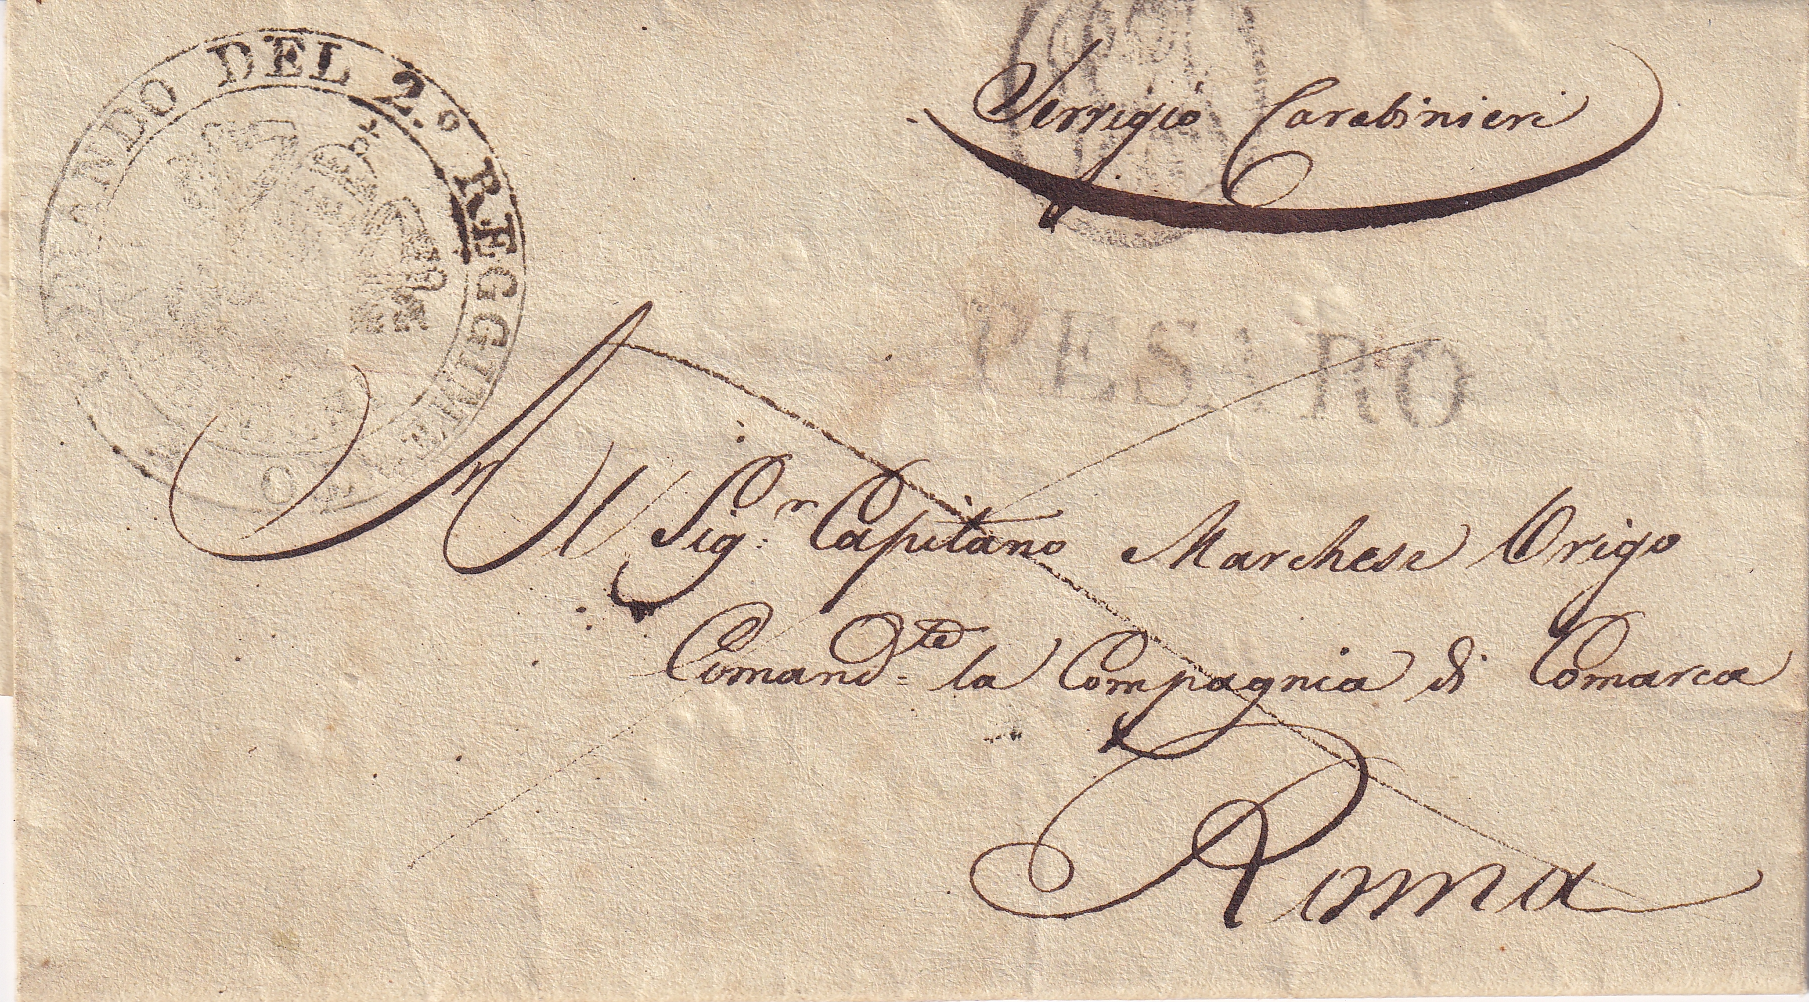 COMANDO DEL 2.º REGGIMENTO
Servigio Carabinieri
PESARO
Al Sig.r Capitano Marchese Origo
Comand.te la Compagnia di Comarca
Roma